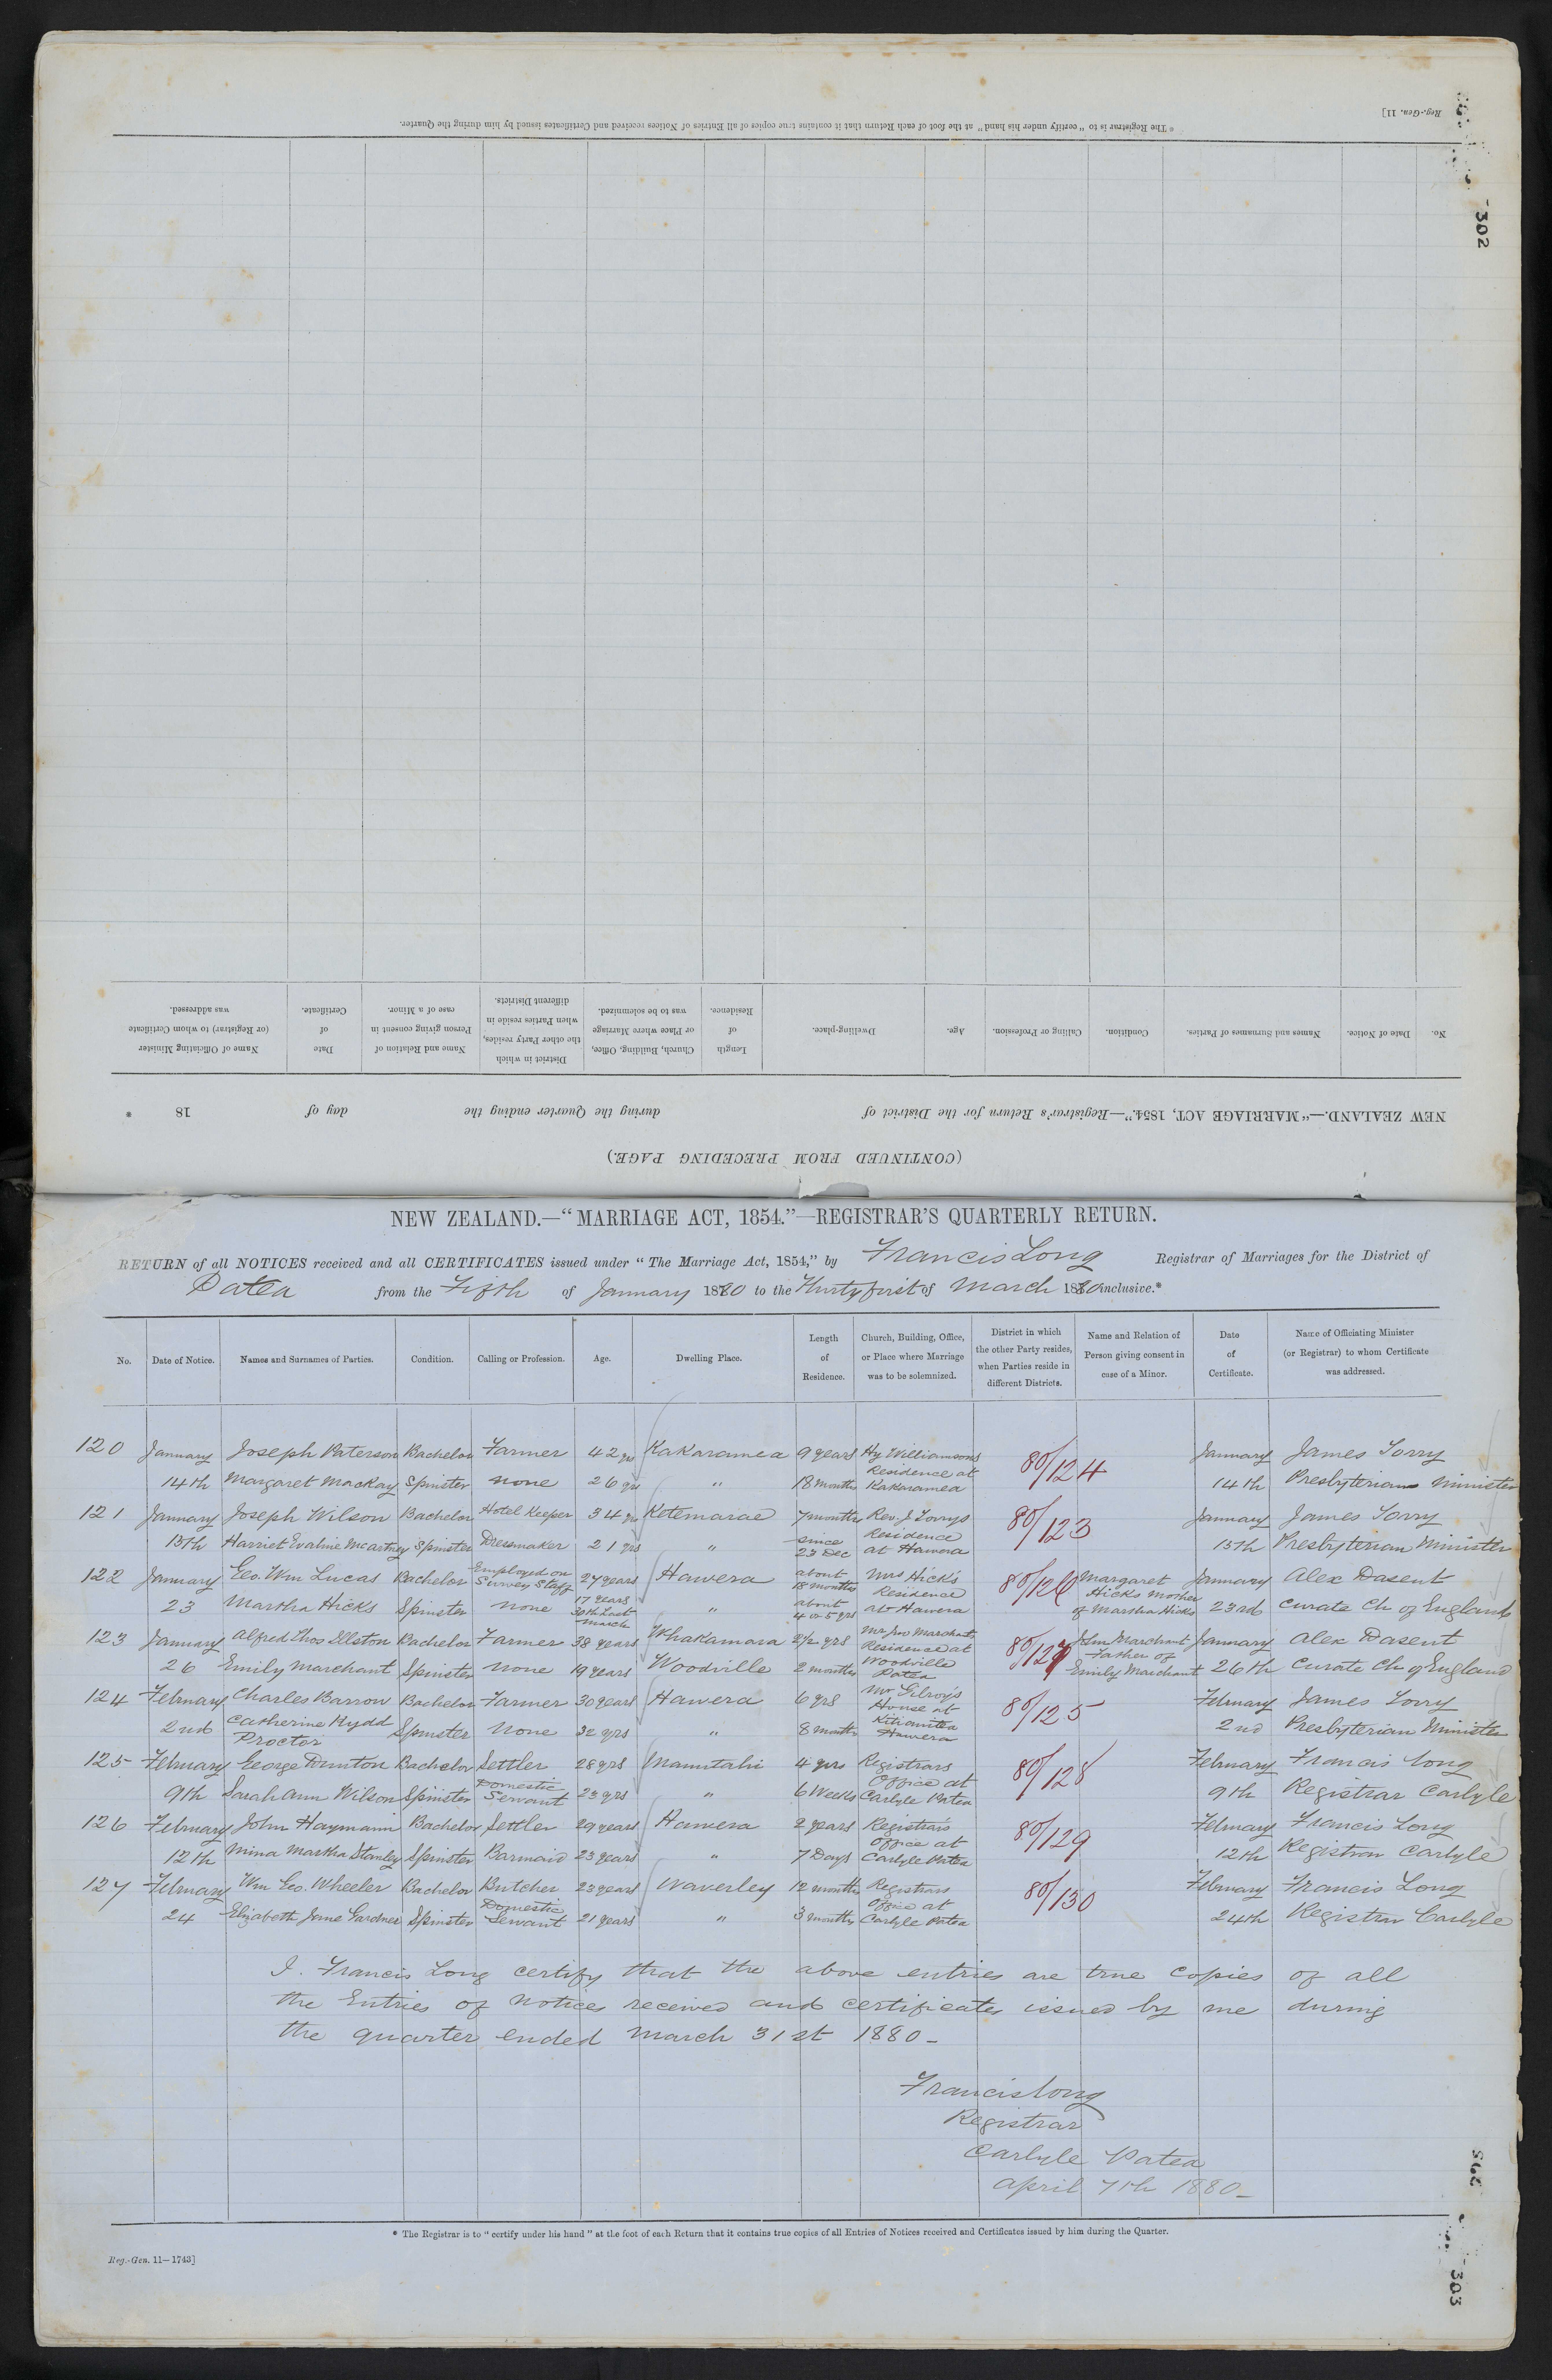 * The Registrar is to "certify under his hand" at the foot of each Return that it contains true copies of all Entries of Notices received and Certificates issued by him during the Quarter.
Reg.-Gen. 11]
302
No. Date of Notice. Names and Surnames of Parties. Condition. Calling or Profession. Age. Dwelling-place. Length of Residence. Church, Building, Office, or Place where Marriage was to be solemnized. District in which the other Party resides, when Parties reside in different Districts. Name and Relation of Person giving consent in case of a Minor. Date of Certificate. Name of Officiating Minister (or Registrar) to whom Certificate was addressed.
NEW ZEALAND.—"MARRIAGE ACT, 1854."—Registrar's Return for the District of during the Quarter ending the day of 18 *
(CONTINUED FROM PRECEDING PAGE.)
NEW ZEALAND.—"MARRIAGE ACT, 1854."—REGISTRAR'S QUARTERLY RETURN.
RETURN of all NOTICES received and all CERTIFICATES issued under "The Marriage Act, 1854," by Francis Long Registrar of Marriages for the District of
Patea from the Fifth of January 1880 to the Thirty first of March 1880 inclusive.*
No. Date of Notice. Names and Surnames of Parties. Condition. Calling or Profession. Age. Dwelling Place. Length of Residence. Church, Building, Office, or Place where Marriage was to be solemnized. District in which the other Party resides, when Parties reside in different Districts. Name and Relation of Person giving consent in case of a Minor. Date of Certificate. Name of Officiating Minister (or Registrar) to whom Certificate was addressed.
120 January Joseph Paterson Bachelor Farmer 42 yrs Kakaramea 9 years Hy Williamsons Residence at Kakaramea 80/124 January James Torry
14th Margaret MacKay Spinster none 26 yrs " 18 months 14th Presbyterian Minister
121 January Joseph Wilson Bachelor Hotel Keeper 34 yrs Ketemarae 7 months Rev. J Torrys Residence at Hawera 80/123 January James Torry
15th Harriet Evaline Mcartney Spinster Dressmaker 21 yrs " since 23 Dec 15th Presbyterian Minister
122 January Geo. Wm Lucas Bachelor Employed on Survey Staff 27 years Hawera about 18 months Mrs Hick's Residence at Hawera 80/126 Margaret Hicks Mother of Martha Hicks January Alex Dasent
23 Martha Hicks Spinster none 17 years 30th last March " about 4 or 5 yrs 23rd Curate Ch of England
123 January Alfred Thos Ellston Bachelor Farmer 38 years Whakamara 2½ yrs Mr Jno Marchants Residence at Woodville Patea 80/127 John Marchant Father of Emily Marchant January Alex Dasent
26 Emily Marchant Spinster none 19 years Woodville 2 months 26th Curate Ch of England
124 February Charles Barrow Bachelor Farmer 30 years Hawera 6 yrs Mr Gilroy's House at Hawera 80/125 February James Torry
2nd Catherine Kydd Proctor Spinster none 32 yrs " 8 months 2nd Presbyterian Minister
125 February George Dunton Bachelor Settler 28 yrs Manutahi 4 yrs Registrars Office at Carlyle Patea 80/128 February Francis Long
9th Sarah Ann Wilson Spinster Domestic Servant 23 yrs " 6 Weeks 9th Registrar Carlyle
126 February John Haymann Bachelor Settler 29 years Hawera 2 years Registrars Office at Carlyle Patea 80/129 February Francis Long
12th Mina Martha Stanley Spinster Barmaid 23 years " 7 Days 12th Registrar Carlyle
127 February Wm Geo. Wheeler Bachelor Butcher 23 years Waverley 12 months Registrars Office at Carlyle Patea 80/130 February Francis Long
24 Elizabeth Jane Gardner Spinster Domestic Servant 21 years " 3 months 24th Registrar Carlyle
I. Francis Long certify that the above entries are true copies of all
the Entries of notices received and certificates issued by me during
the quarter ended March 31st 1880 -
Francis Long
Registrar
Carlyle Patea
April 7th 1880 -
* The Registrar is to "certify under his hand" at the foot of each Return that it contains true copies of all Entries of Notices received and Certificates issued by him during the Quarter.
Reg.-Gen. 11—1743]
303